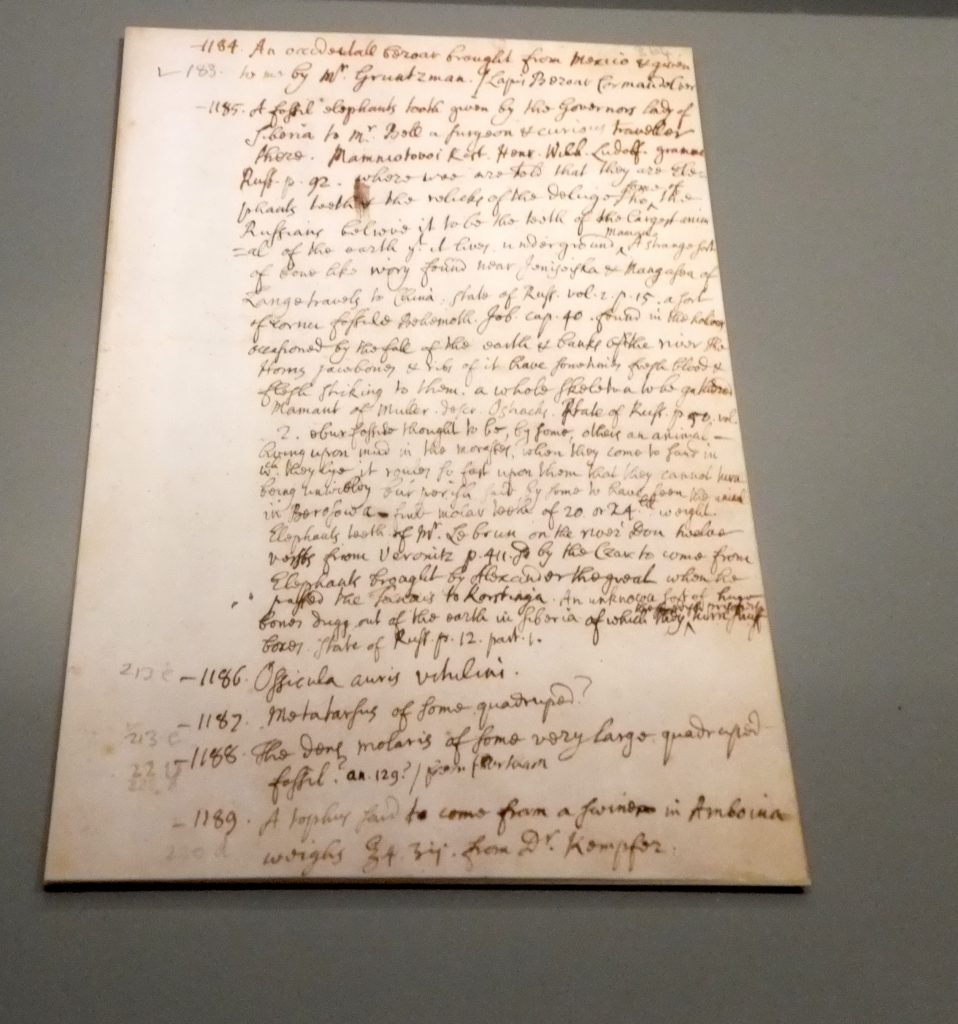 -1184. An occidentall bezoar brought from Mexico & given
183. to me by Mr. Gruntzman. / Lapis Bezoar
-1185. A fossil elephants tooth given by the Governors lady of
Siberia to Mr. Bell a surgeon & curious traveller
there. Mammotovoi Kost. Henr. Wilh. Ludolf. gramm
Russ. p. 92. where wee are told that they are Ele
phants teeth & the relicks of the deluge some of the
Russians believe it to be the teeth of the largest anim
=al of the earth yt. it lives underground. A strange sort
of bone like ivory found near Jenizeiska & Mangasea of
Lange travels to China. State of Russ. vol. 2. p. 15. a sort
of cornu fossile Behemoth. Job. cap. 40. found in the
occasioned by the fall of the earth & banks of the river the
Horns jawbones & ribs of it have sometimes fresh blood &
flesh sticking to them. a whole skeleton to be gathered
Mamant of Muller. descr. Ostiacks. State of Russ. p. 50. vol.
2. ebur fossile thought to be, by some, others an animal -
living upon mud in the morasses, when they come to sand in
wch. they lye it rowles so fast upon them that they cannot turn
being unwieldy but perish said by some to have seen the
in Beresowa - find molar teeth of 20 or 24 lb weight.
Elephants teeth of Mr. Le brun on the river Don twelve
versts from Veronitz p. 411. by the Czar to come from
Elephants brought by Alexander the great when he
passed the Tanais to Kostinga. An unknown sort of huge
bones dugg out of the earth in Siberia of which they turn snuff
boxes. State of Russ. p. 12. part. 1.
213 c -1186. Ossicula auris vitulini.
-1187. Metatarsus of some quadruped?
213 c
-1188. The dens molaris of some very large quadruped
fossil? an. 129? /
-1189. A tophus said to come from a swine in Amboina
weighs ℥4. ʒij. from Dr. Kempfer.